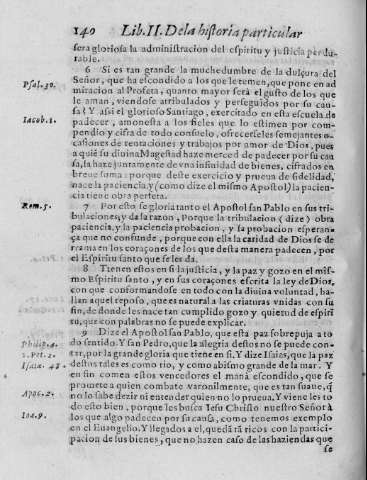 140 Lib. II. De la historia particular
sera gloriosa la administracion del espiritu y justicia perdu-
rable.
6 Si es tan grande la muchedumbre de la dulçura del
Psal. 30. Señor, que ha escondido a los que le temen, que pone en ad
miracion al Profeta, quanto mayor será el gusto de los que
le aman, viendose atribulados y perseguidos por su cau
Iacob. 1. sa? Y assi el glorioso Santiago, exercitado en esta escuela de
padecer, amonesta a los fieles que lo estimen por com-
pendio y cifra de todo consuelo, ofrecerseles semejantes o-
casiones de tentaciones y trabajos por amor de Dios, pues
a quiē su diuina Magestad haze merced de padecer por su cau
sa, la haze juntamente de vna infinidad de bienes, cifrados en
breue suma: porque deste exercicio y prueua de fidelidad,
nace la paciencia, y (como dize el mismo Apostol) la pacien-
cia tiene obra perfeta.
Rom. 5. 7 Por esso se gloria tanto el Apostol san Pablo en sus tri-
bulaciones, y da la razon, Porque la tribulacion (dize) obra
paciencia, y la paciencia probacion, y la probacion esperan-
ça que no confunde, porque con ella la caridad de Dios se de
rrama en los coraçones de los que desta manera padecen, por
el Espiritu santo que se les da.
8 Tienen estos en si la justicia, y la paz y gozo en el mis-
mo Espiritu santo, y en sus coraçones escrita la ley de Dios,
con que conformandose en todo con la diuina voluntad, ha-
llan aquel reposo, que es natural a las criaturas vnidas con su
fin, de donde les nace tan cumplido gozo y quietud de espiri
tu, que con palabras no se puede explicar.
9 Dize el Apostol san Pablo, que esta paz sobrepuja a to
Philip. 4. do sentido. Y san Pedro, que la alegria destos no se puede con-
1. Pet. 2. tar, por la grande gloria que tiene en si. Y dize Isaias, que la paz
Isaia. 48. destos tales es como rio, y como abismo grande de la mar. Y
en fin comen estos vencedores el maná escondido, que se
promete a quien combate varonilmente, que es tan suaue, q̄
Apoc. 2. no lo sabe dezir ni entender quien no lo prueua. Y viene les to
do este bien, porque los busca Iesu Christo nuestro Señor à
Ioa. 9. los que algo padecen por su causa, como tenemos exemplo
en el Euangelio. Y llegados a el, quedarā ricos con la partici-
pacion de sus bienes, que no hazen caso de las haziendas que
se